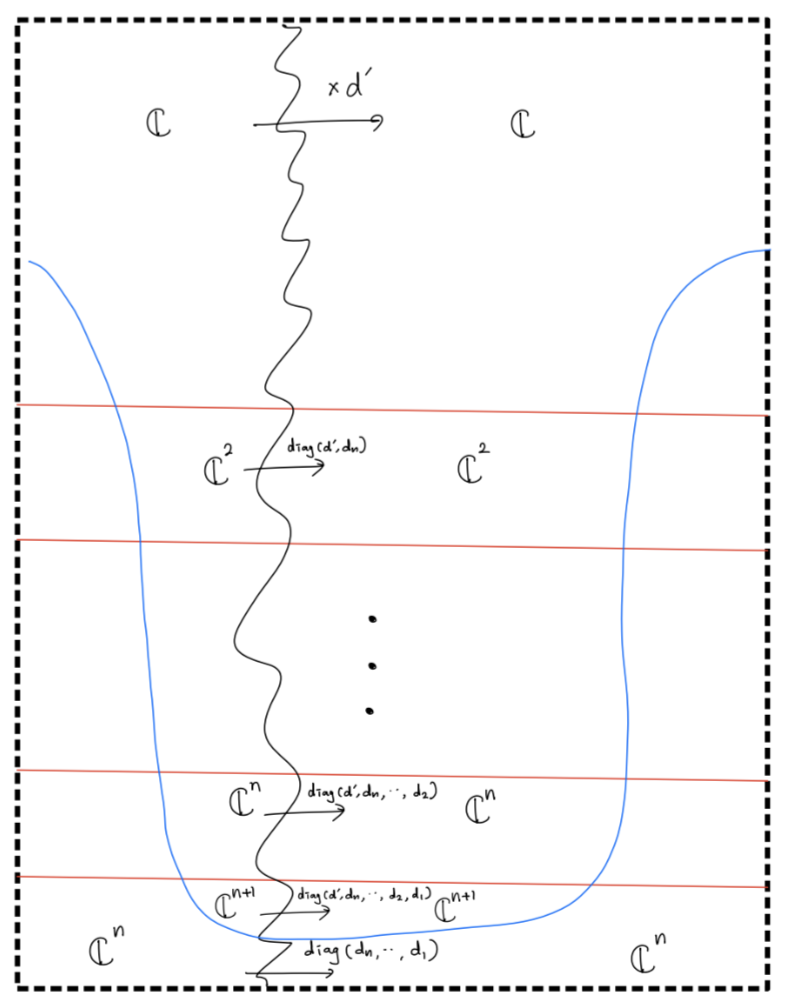 × d′
ℂ ℂ
diag(d′,dₙ)
ℂ² ℂ²
diag(d′,dₙ,··,d₂)
ℂⁿ ℂⁿ
diag(d′,dₙ,··,d₂,d₁)
ℂⁿ⁺¹ ℂⁿ⁺¹
diag(dₙ,··,d₁)
ℂⁿ ℂⁿ